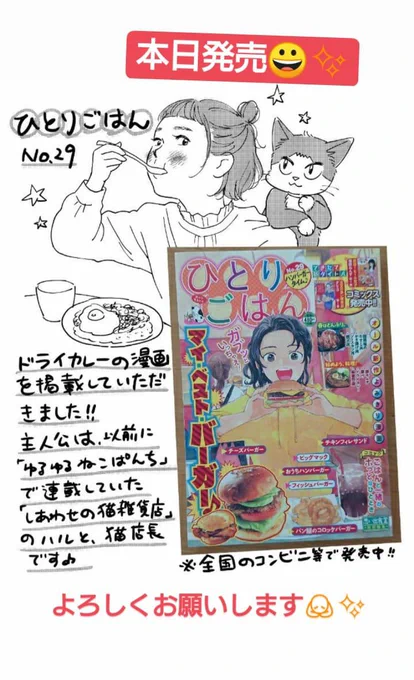 本日発売😀✨
ひとりごはん
No.29
ドライカレーの漫画
を掲載していただ
きました!!
主人公は、以前に
「ゆるゆるねこぱんち」
で連載していた
「しあわせの猫雑貨店」
のハルと、猫店長
です♪
ひとり
ごはん
コミックス
発売中!!
マイ・ベストバーガー
チーズバーガー
チキンフィレサンド
ビッグマック
おうちハンバーガー
フィッシュバーガー
パン屋のコロッケバーガー
※全国のコンビニ等で発売中!!
よろしくお願いします🙇✨